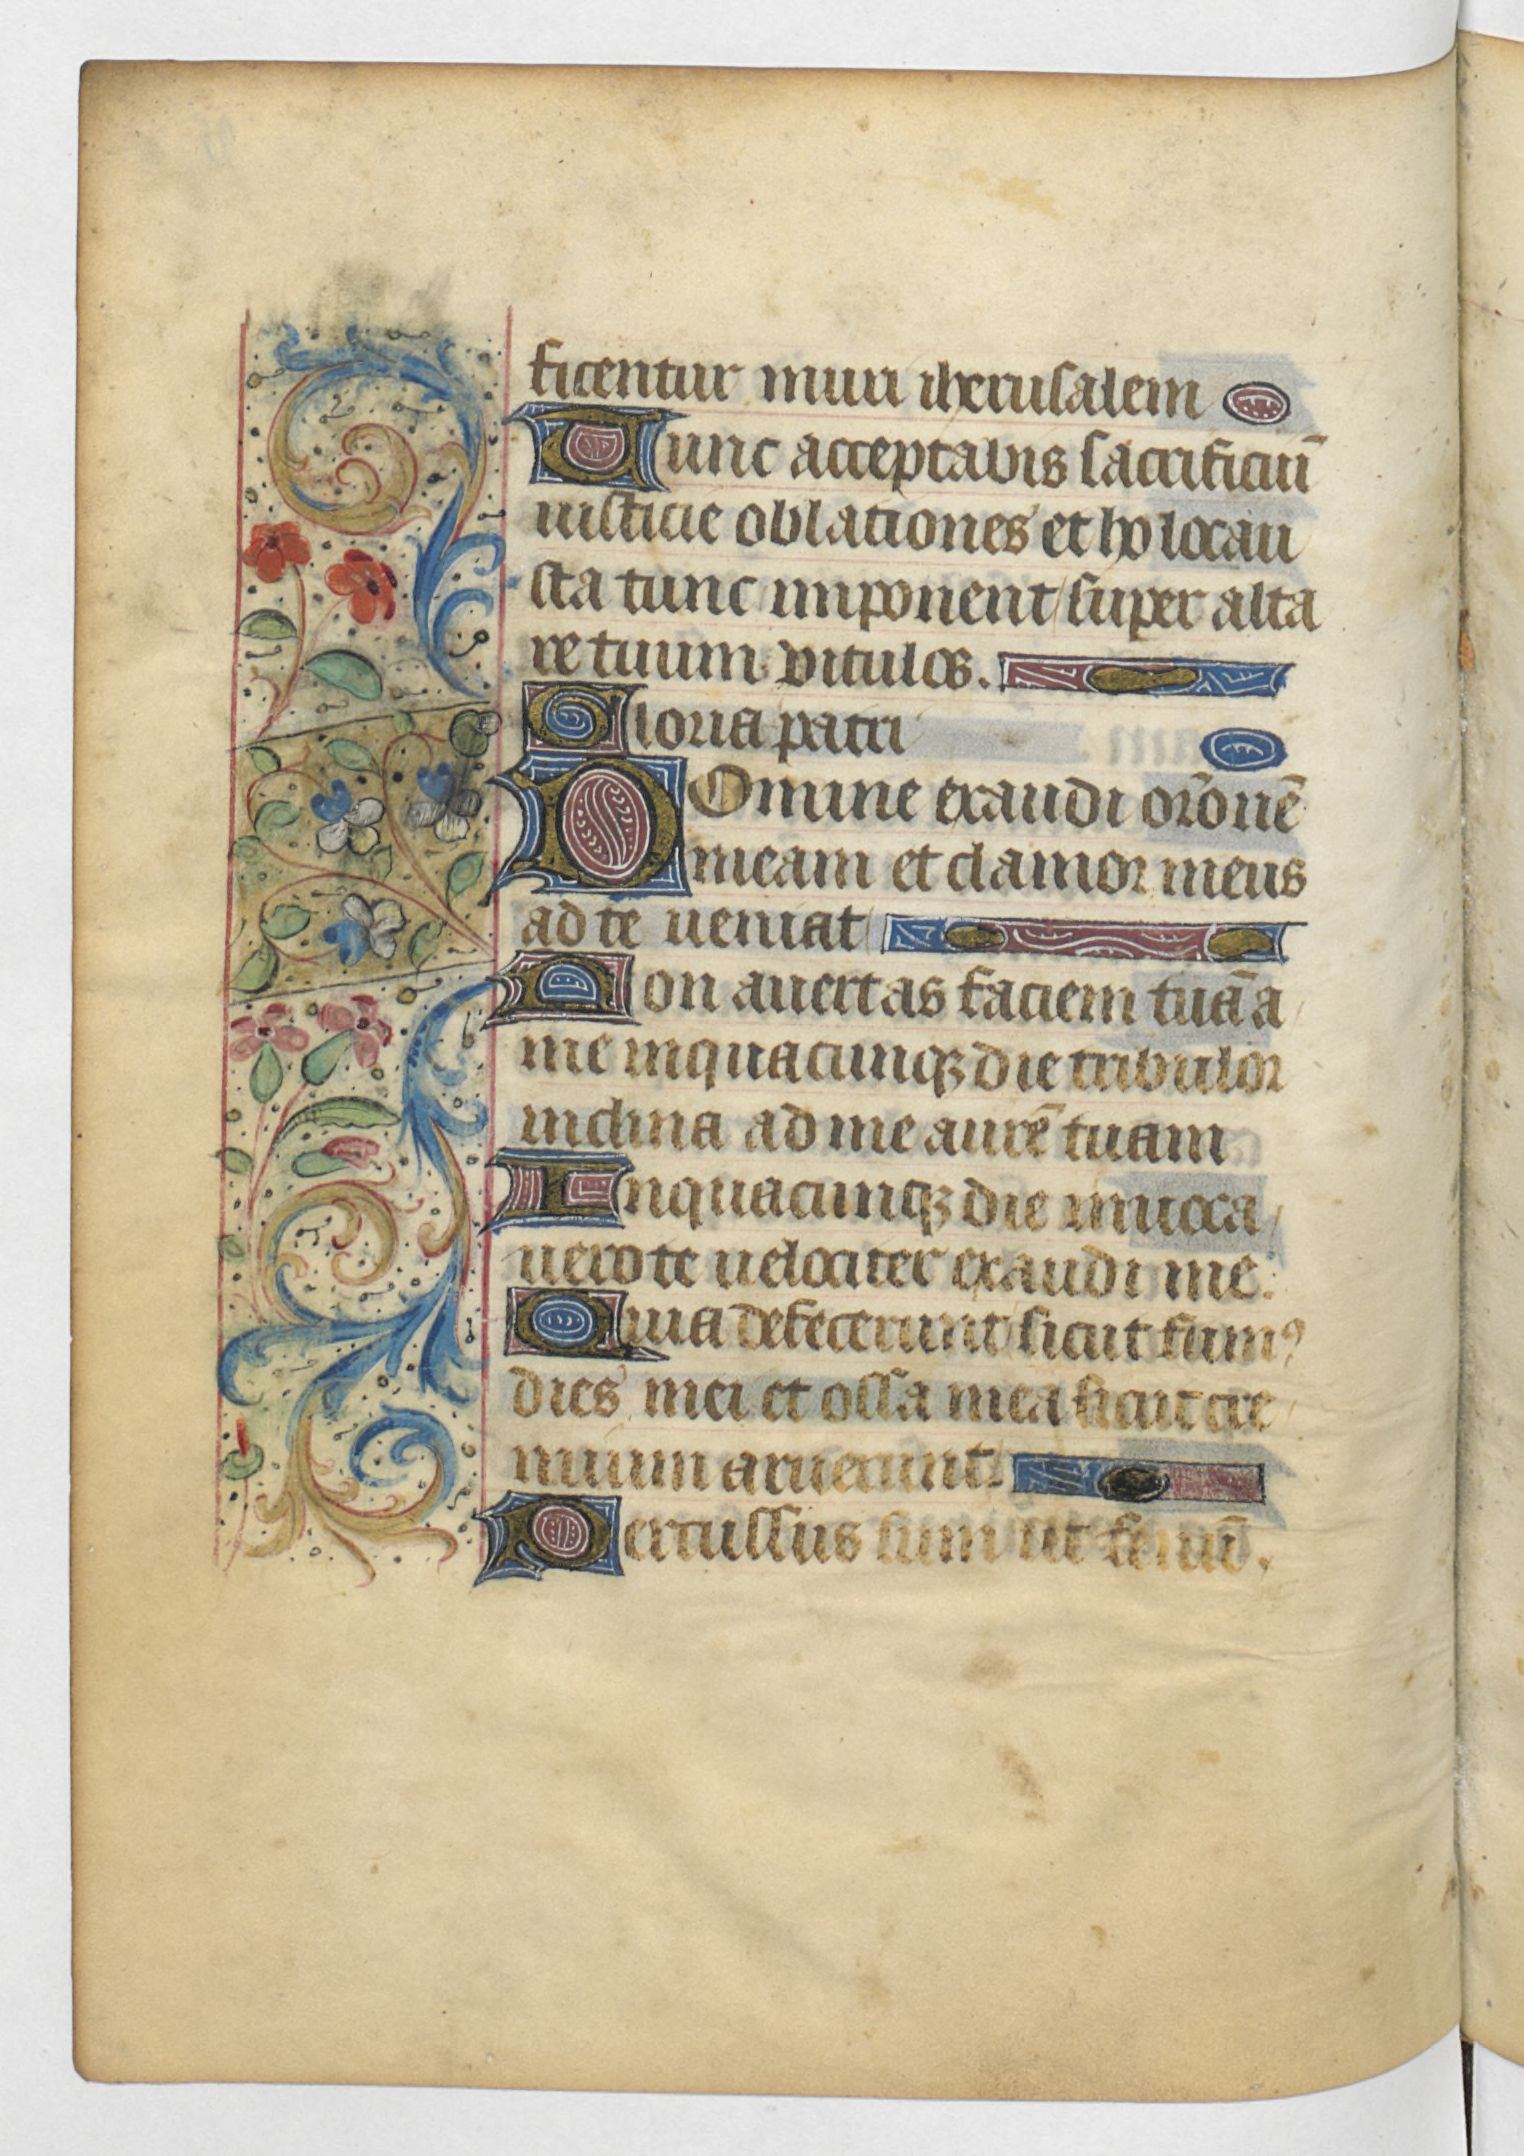 ficentur muri iherusalem
Tunc acceptabis sacrificiū
iusticie oblationes et holocau
sta tunc imponent super alta
re tuum vitulos.
Gloria patri
Domine exaudi or̄onē
meam et clamor meus
ad te ueniat
Non auertas faciem tuā a
me inquacunqꝫ die tribulor
inclina ad me aurē tuam
Inquacunqꝫ die inuoca
uero te uelociter exaudi me.
Quia defecerunt sicut fumꝰ
dies mei et ossa mea sicut cre
mium aruerunt.
Percussus sum ut fenū.